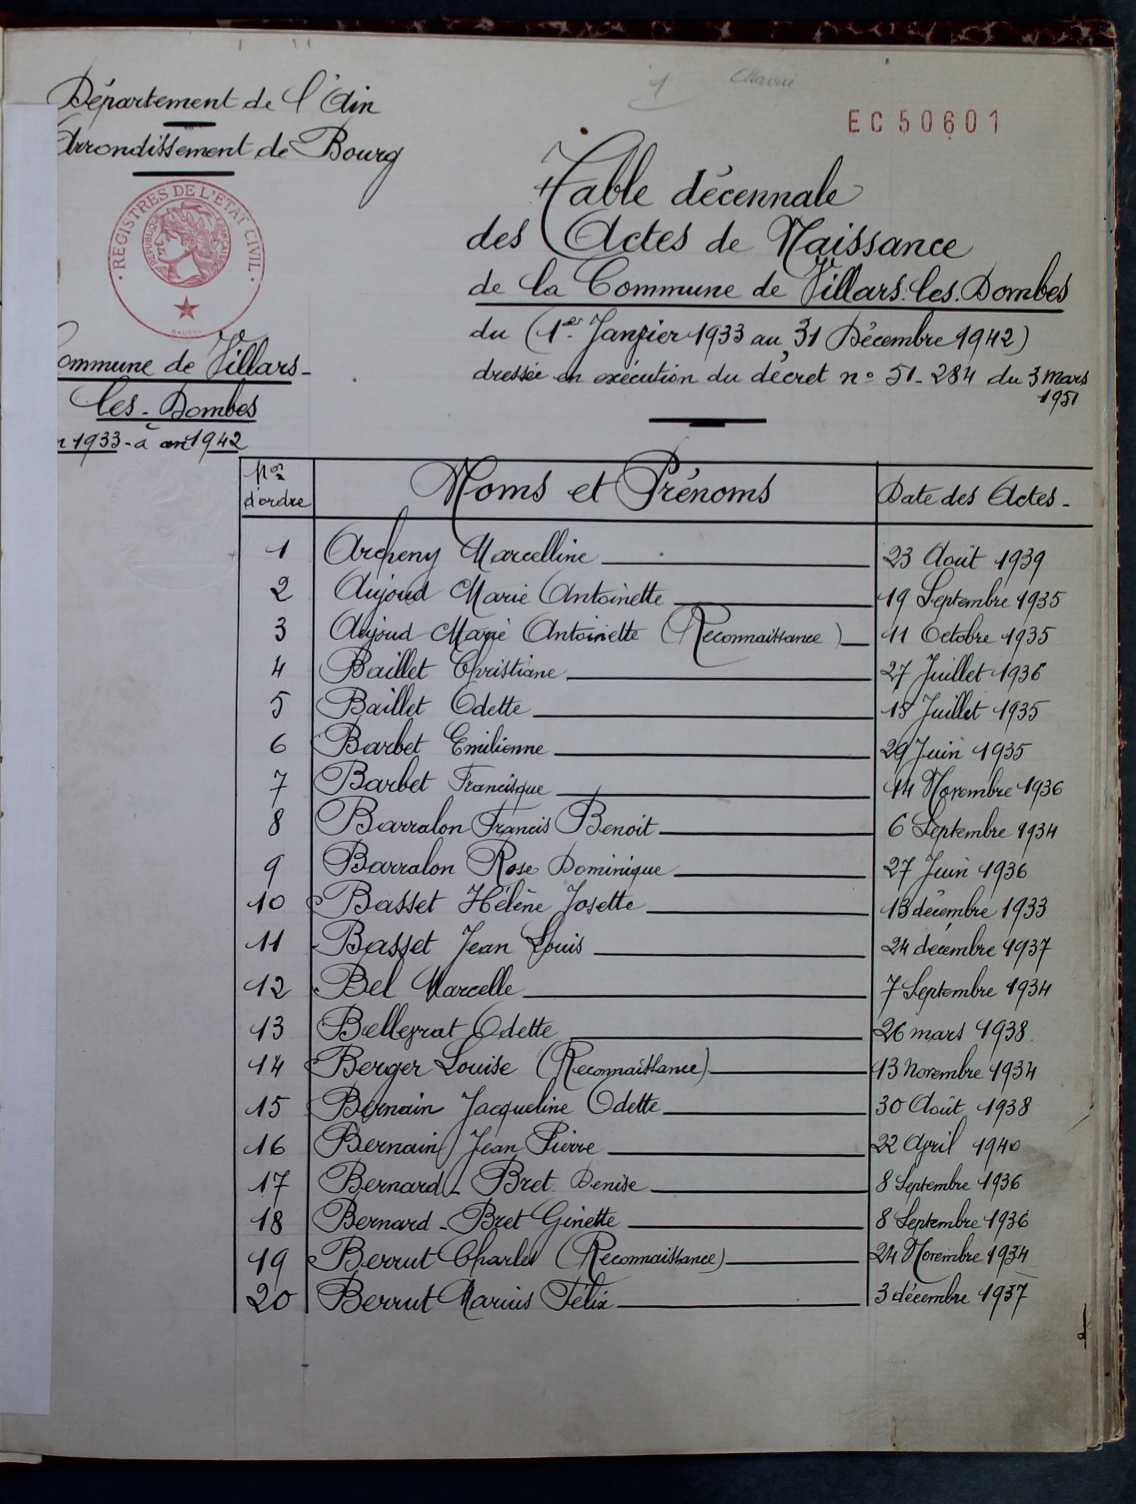 Département de l'Ain
Arrondissement de Bourg
REGISTRES DE L'ETAT CIVIL
ommune de Villars-
les-Dombes
1933-à an 1942
EC50601
Table décennale
des Actes de Naissance
de la Commune de Villars.les.Dombes
du (1er Janvier 1933 au 31 Décembre 1942)
dressée en exécution du décret no 51-284 du 3 mars
1951
Nos d'ordre Noms et Prénoms Date des Actes-
1 Archeny Marcelline 23 Août 1939
2 Aujoud Marie Antoinette 19 Septembre 1935
3 Aujoud Marie Antoinette (Reconnaissance) 11 Octobre 1935
4 Baillet Christiane 27 Juillet 1936
5 Baillet Odette 15 Juillet 1935
6 Barbet Emilienne 29 Juin 1935
7 Barbet Francisque 14 Novembre 1936
8 Barralon Francis Benoit 6 Septembre 1934
9 Barralon Rose Dominique 27 Juin 1936
10 Basset Hélène Josette 13 décembre 1933
11 Basset Jean Louis 24 décembre 1937
12 Bel Marcelle 7 Septembre 1934
13 Belleyrat Odette 26 mars 1938
14 Berger Louise (Reconnaissance) 13 novembre 1934
15 Bernain Jacqueline Odette 30 Août 1938
16 Bernain Jean Pierre 22 April 1940
17 Bernard-Bret Denise 8 Septembre 1936
18 Bernard-Bret Ginette 8 Septembre 1936
19 Berrut Charles (Reconnaissance) 24 Novembre 1934
20 Berrut Marius Félix 3 décembre 1937